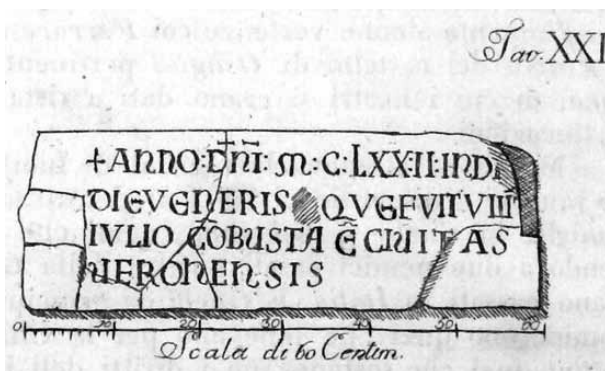 Tav. XXI
+ANNO:DNI:M:C:LXXII:INDI
DIE VENERIS QVE FVIT VIII
IVLIO COBUSTA E CIVITAS
0 10 20 30 40 50 60
Scala di 60 Centim.